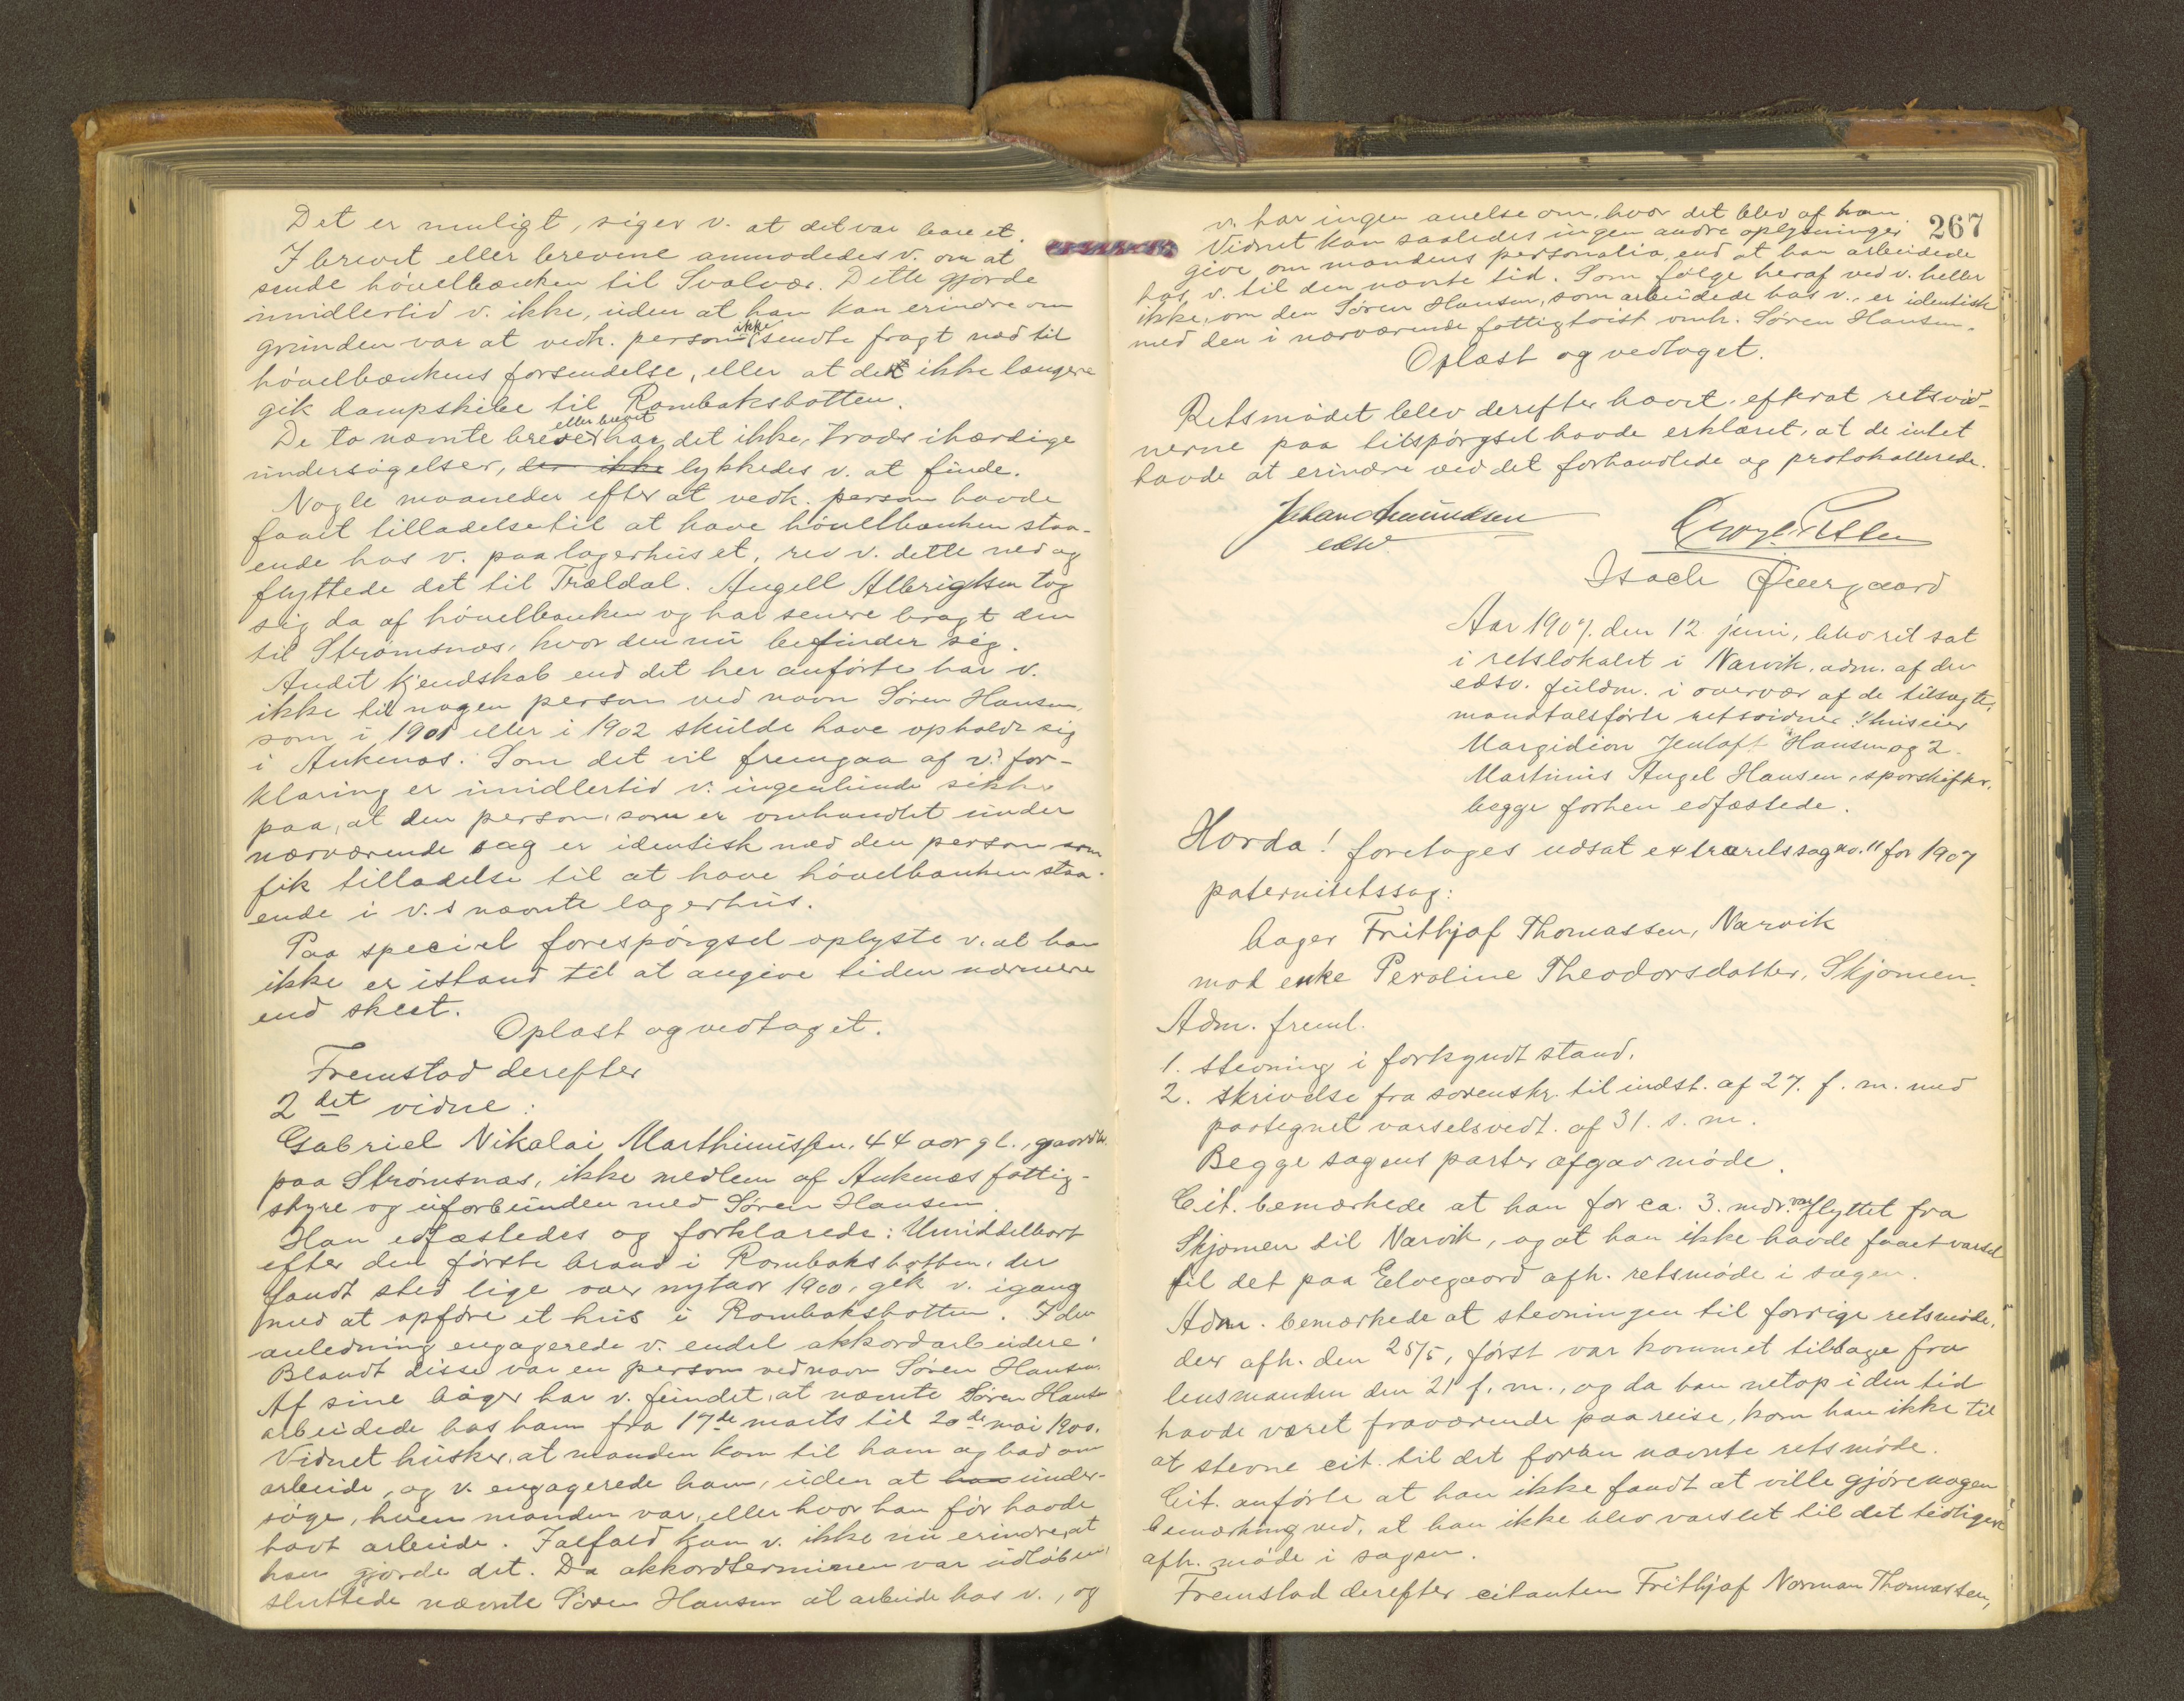 Det er muligt, siger v. at det var bare et.
I brevet eller brevene anmodedes v. om at
sende hövelbænken til Svolvær. Dette gjorde
imidlertid v. ikke, uden at han kan erindre om
grunden var at vedk. person ikke sendte fragt ned til
hövelbænkens forsendelse, eller at det ikke længere
gik dampskibe til Rombaksbotten.
De to nævnte breve eller brevet har det ikke, trods ihærdige
undersøgelser, der ikke lykkedes v. at finde.
Nogle maaneder efter at vedk. person havde
faaet tilladelse til at have hövelbænken staa-
ende hos v. paa lagerhuset, rev v. dette ned og
flyttede det til Trældal. Angell Albrigtsen tog
sig da af hövelbænken og har senere bragt den
til Strømsnæs, hvor den nu befinder sig.
Andet kjendskab end det her anförte har v.
ikke til nogen person ved navn Søren Hansen,
som i 1901 eller i 1902 skulde have opholdt sig
i Ankenes. Som det vil fremgaa af v.s for-
klaring er imidlertid v. ingenlunde sikker
paa, at den person, som er omhandlet under
nærværende sag er identisk med den person som
fik tilladelse til at have hövelbænken staa-
ende i v.s nævnte lagerhus.
Paa speciel forespörgsel oplyste v. at han
ikke er istand til at angive tiden nærmere
end skeet.
Oplæst og vedtaget.
Fremstod derefter
2det vidne:
Gabriel Nikolai Marthinussen, 44 aar gl., gaardbr.
paa Strømsnæs, ikke medlem af Ankenæs fattig-
styre og uforbunden med Søren Hansen.
Han edfæstedes og forklarede: Umiddelbart
efter den förste brand i Rombaksbotten, der
fandt sted lige over nytaar 1900, gik v. igang
med at opføre et hus i Rombaksbotten. I den
anledning engagerede v. endel akkordarbeidere.
Blandt disse var en person ved navn Søren Hansen.
Af sine bøger har v. fundet, at nævnte Søren Hansen
arbeidede hos ham fra 17de marts til 20de mai 1900.
Vidnet husker, at manden kom til ham og bad om
arbeide, og v. engagerede ham, uden at han under-
söge, hvem manden var, eller hvor han för havde
havt arbeide. Ialfald kan v. ikke nu erindre, at
han gjorde det. Da akkordterminen var udlöben,
sluttede nævnte Søren Hansen at arbeide hos v., og
267
v. har ingen anelse om, hvor det blev af ham.
Vidnet kan saaledes ingen andre oplysninger
give om mandens personalia, end at han arbeidede
hos v. til den nævnte tid. Som følge heraf ved v. heller
ikke, om den Søren Hansen, som arbeidede hos v., er identisk
med den i nærværende fattigtvist omh. Søren Hansen.
Oplæst og vedtaget.
Retsmødet blev derefter hævet, efterat retsvid-
nerne paa tilspørgsel havde erklæret, at de intet
havde at erindre ved det forhandlede og protokollerede.
Johan Amundsen
edsv.
Isach Øiergaard
Aar 1907. den 12 juni, blev ret sat
i retslokalet i Narvik, adm. af den
edsv. fuldm. i overvær af de tilsagte,
mandtalsförte retsvidner: 1. huseier
Margidion Jentoft Hansen og 2.
Martinus Angel Hansen, sporskifter,
begge forhen edfæstede.
Hvorda! foretages udsat extraretssag no. 11 for 1907
paternitetssag:
bager Frithjof Thomassen, Narvik
mod enke Peroline Theodorsdatter, Skjomen.
Adm. freml.
1. stevning i forkyndt stand.
2. skrivelse fra sorenskr. til indst. af 27. f. m. med
paategnet varselsvedt. af 31. s. m.
Begge sagens parter afgav møde.
Cit. bemærkede at han for ca. 3. mdr. var flyttet fra
Skjomen til Narvik, og at han ikke havde faaet varsel
til det paa Elvegaard afh. retsmøde i sagen.
Adm. bemærkede at stevningen til forrige retsmøde,
der afh. den 25/5, först var kommet tilbage fra
lensmanden den 21 f. m., og da han netop i den tid
havde været fraværende paa reise, kom han ikke til
at stevne cit. til det foran nævnte retsmøde.
Cit. anförte at han ikke fandt at ville gjöre nogen
bemærkning ved, at han ikke blev varslet til det tidligere
afh. møde i sagen.
Fremstod derefter citanten Frithjof Norman Thomassen,